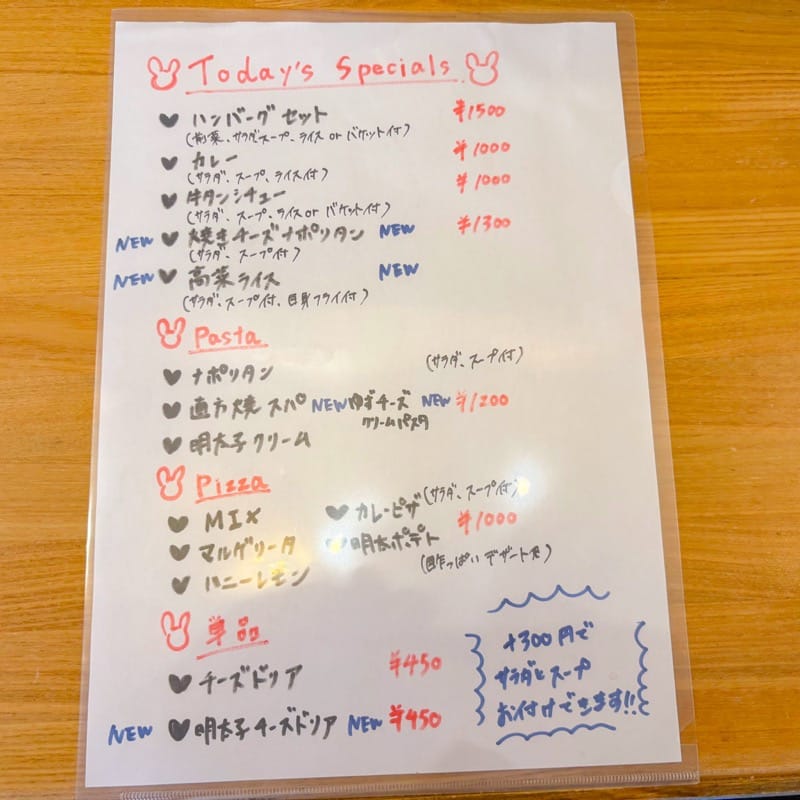 Today's Specials
ハンバーグセット ¥1500
(前菜、サラダスープ、ライス or バケット付)
カレー ¥1000
(サラダ、スープ、ライス付)
牛タンシチュー ¥1000
(サラダ、スープ、ライス or バケット付)
NEW 焼きチーズナポリタン NEW ¥1300
(サラダ、スープ付)
NEW 高菜ライス NEW
(サラダ、スープ付、白身フライ付)
Pasta
(サラダ、スープ付)
ナポリタン
直方焼スパ NEW ゆずチーズ NEW ¥1200
クリームパスタ
明太子クリーム
Pizza
(サラダ、スープ付)
MIX カレーピザ
¥1000
マルゲリータ 明太ポテト
ハニーレモン
単品
チーズドリア ¥450
NEW 明太子チーズドリア NEW ¥450
+300円で
サラダとスープ
お付けできます!!